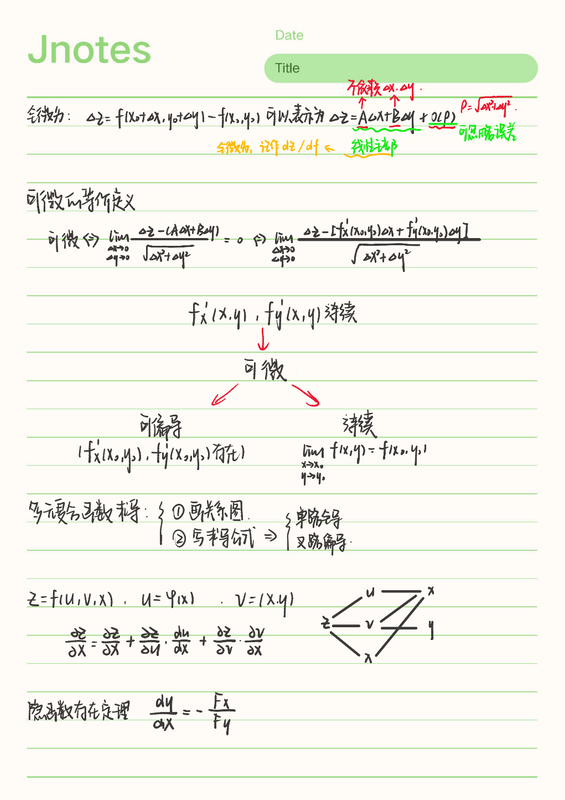 Jnotes
Date
Title
不依赖Δx.Δy.
全微分: Δz=f(x₀+Δx, y₀+Δy)-f(x₀,y₀) 可以表示为 Δz=AΔx+BΔy+o(ρ) ρ=√Δx²+Δy²
可忽略误差
全微分, 记作dz/df ← 线性主部
可微的等价定义
可微⇔ lim Δx→0 Δy→0 Δz-(AΔx+BΔy) / √Δx²+Δy² = 0 ⇔ lim Δx→0 Δy→0 Δz-[fx'(x₀,y₀)Δx+fy'(x₀,y₀)Δy] / √Δx²+Δy²
fx'(x,y), fy'(x,y)连续
可微
可偏导 连续
(fx'(x₀,y₀), fy'(x₀,y₀)存在) lim x→x₀ y→y₀ f(x,y)=f(x₀,y₀)
多元复合函数求导: { ①画关系图. { 单路全导
②写求导公式 ⇒ 叉路偏导.
z=f(u,v,x) , u=φ(x) , v=(x.y)
∂z/∂x=∂z/∂x+∂z/∂u·du/dx+∂z/∂v·∂v/∂x
u x
z v y
x
隐函数存在定理 dy/dx=-Fx/Fy